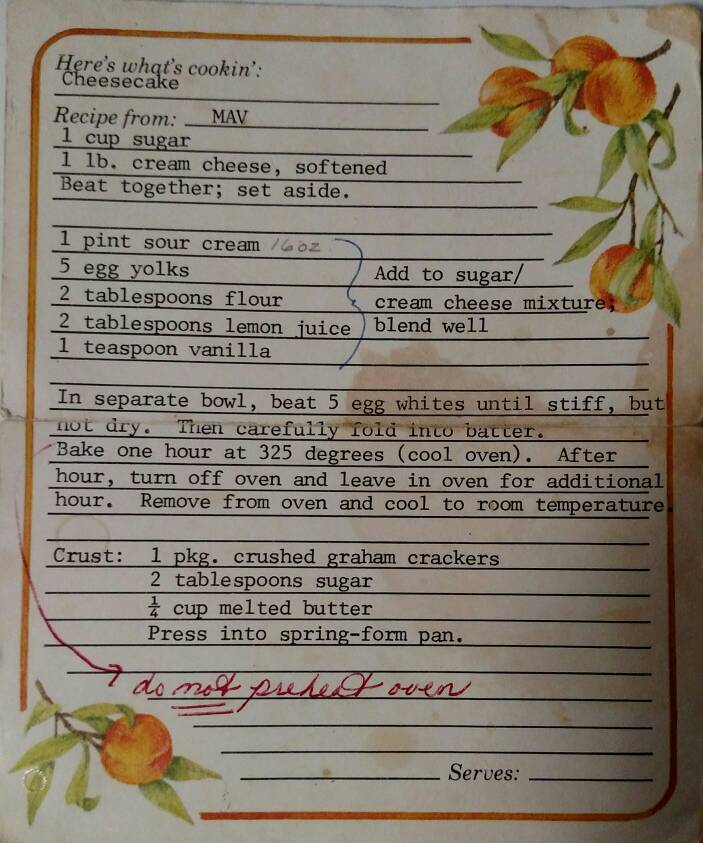 Here's what's cookin':
Cheesecake
Recipe from: MAV
1 cup sugar
1 lb. cream cheese, softened
Beat together; set aside.
1 pint sour cream 16oz
5 egg yolks
2 tablespoons flour
2 tablespoons lemon juice
1 teaspoon vanilla
Add to sugar/
cream cheese mixture;
blend well
In separate bowl, beat 5 egg whites until stiff, but
not dry. Then carefully fold into batter.
Bake one hour at 325 degrees (cool oven). After
hour, turn off oven and leave in oven for additional
hour. Remove from oven and cool to room temperature.
Crust: 1 pkg. crushed graham crackers
2 tablespoons sugar
¼ cup melted butter
Press into spring-form pan.
do not preheat oven
Serves: